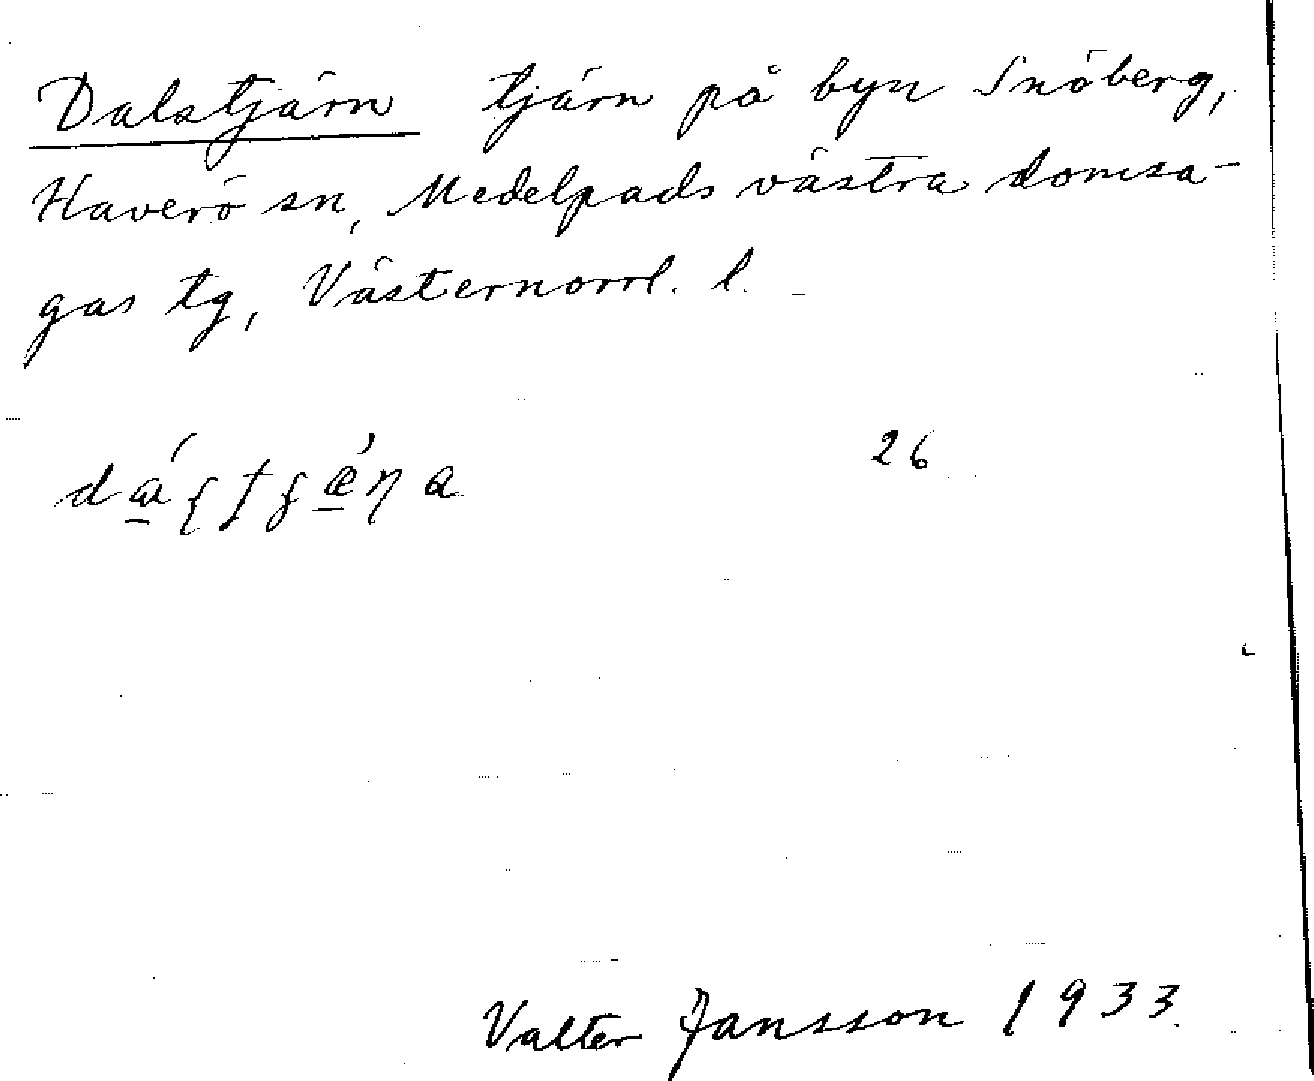 Dalstjärn tjärn på byn Snöberg,
Haverö sn, Medelpads västra domsa-
gas tg, Västernorrl. l.
26
Valter Jansson 1933.